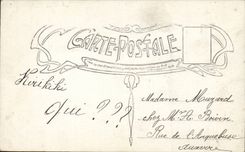 CARTE-POSTALE
Kirikiki
qui ???
Madame Muzard
chez Mr H. Boivin
Rue de l'Arquebuse
Auxerre